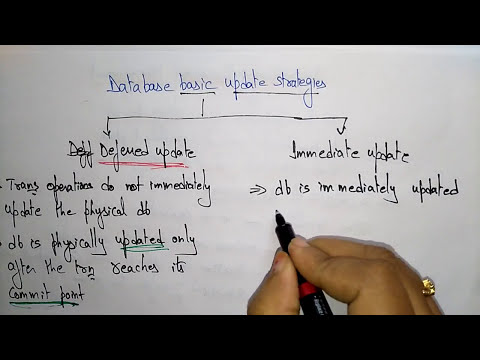 Database basic update strategies
Deferred update
Immediate update
• Trans operations do not immediately
update the physical db
• db is physically updated only
after the tron reaches its
commit point
⇒ db is immediately updated